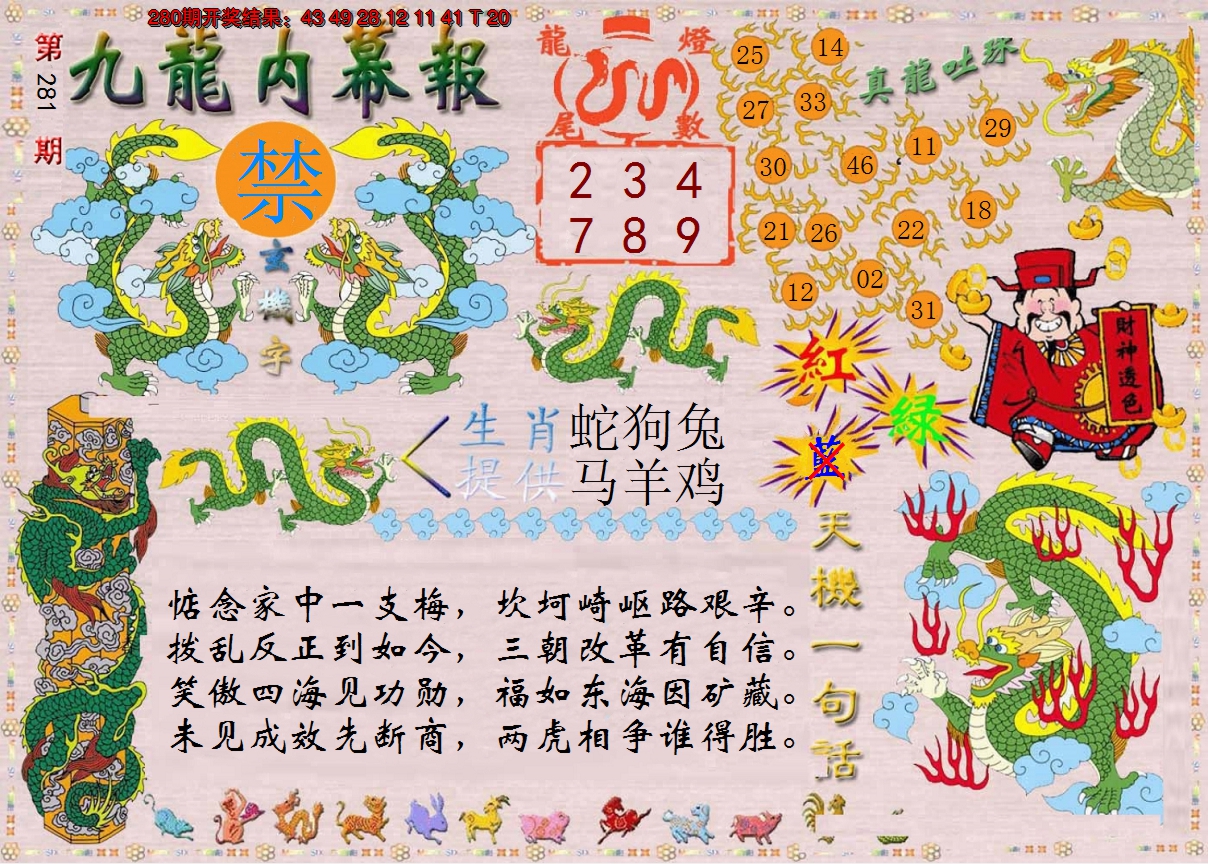 280期开奖结果：43 49 28 12 11 41 T 20
第281期
九龍内幕報
禁
玄機字
龍燈尾數
2 3 4
7 8 9
真龍吐珠
25
14
27
33
11
29
30
46
18
21
26
22
02
12
31
財神透色
紅
綠
藍
生肖提供
蛇狗兔
马羊鸡
天機一句話
惦念家中一支梅，坎坷崎岖路艰辛。
拨乱反正到如今，三朝改革有自信。
笑傲四海见功勋，福如东海因矿藏。
未见成效先断商，两虎相争谁得胜。